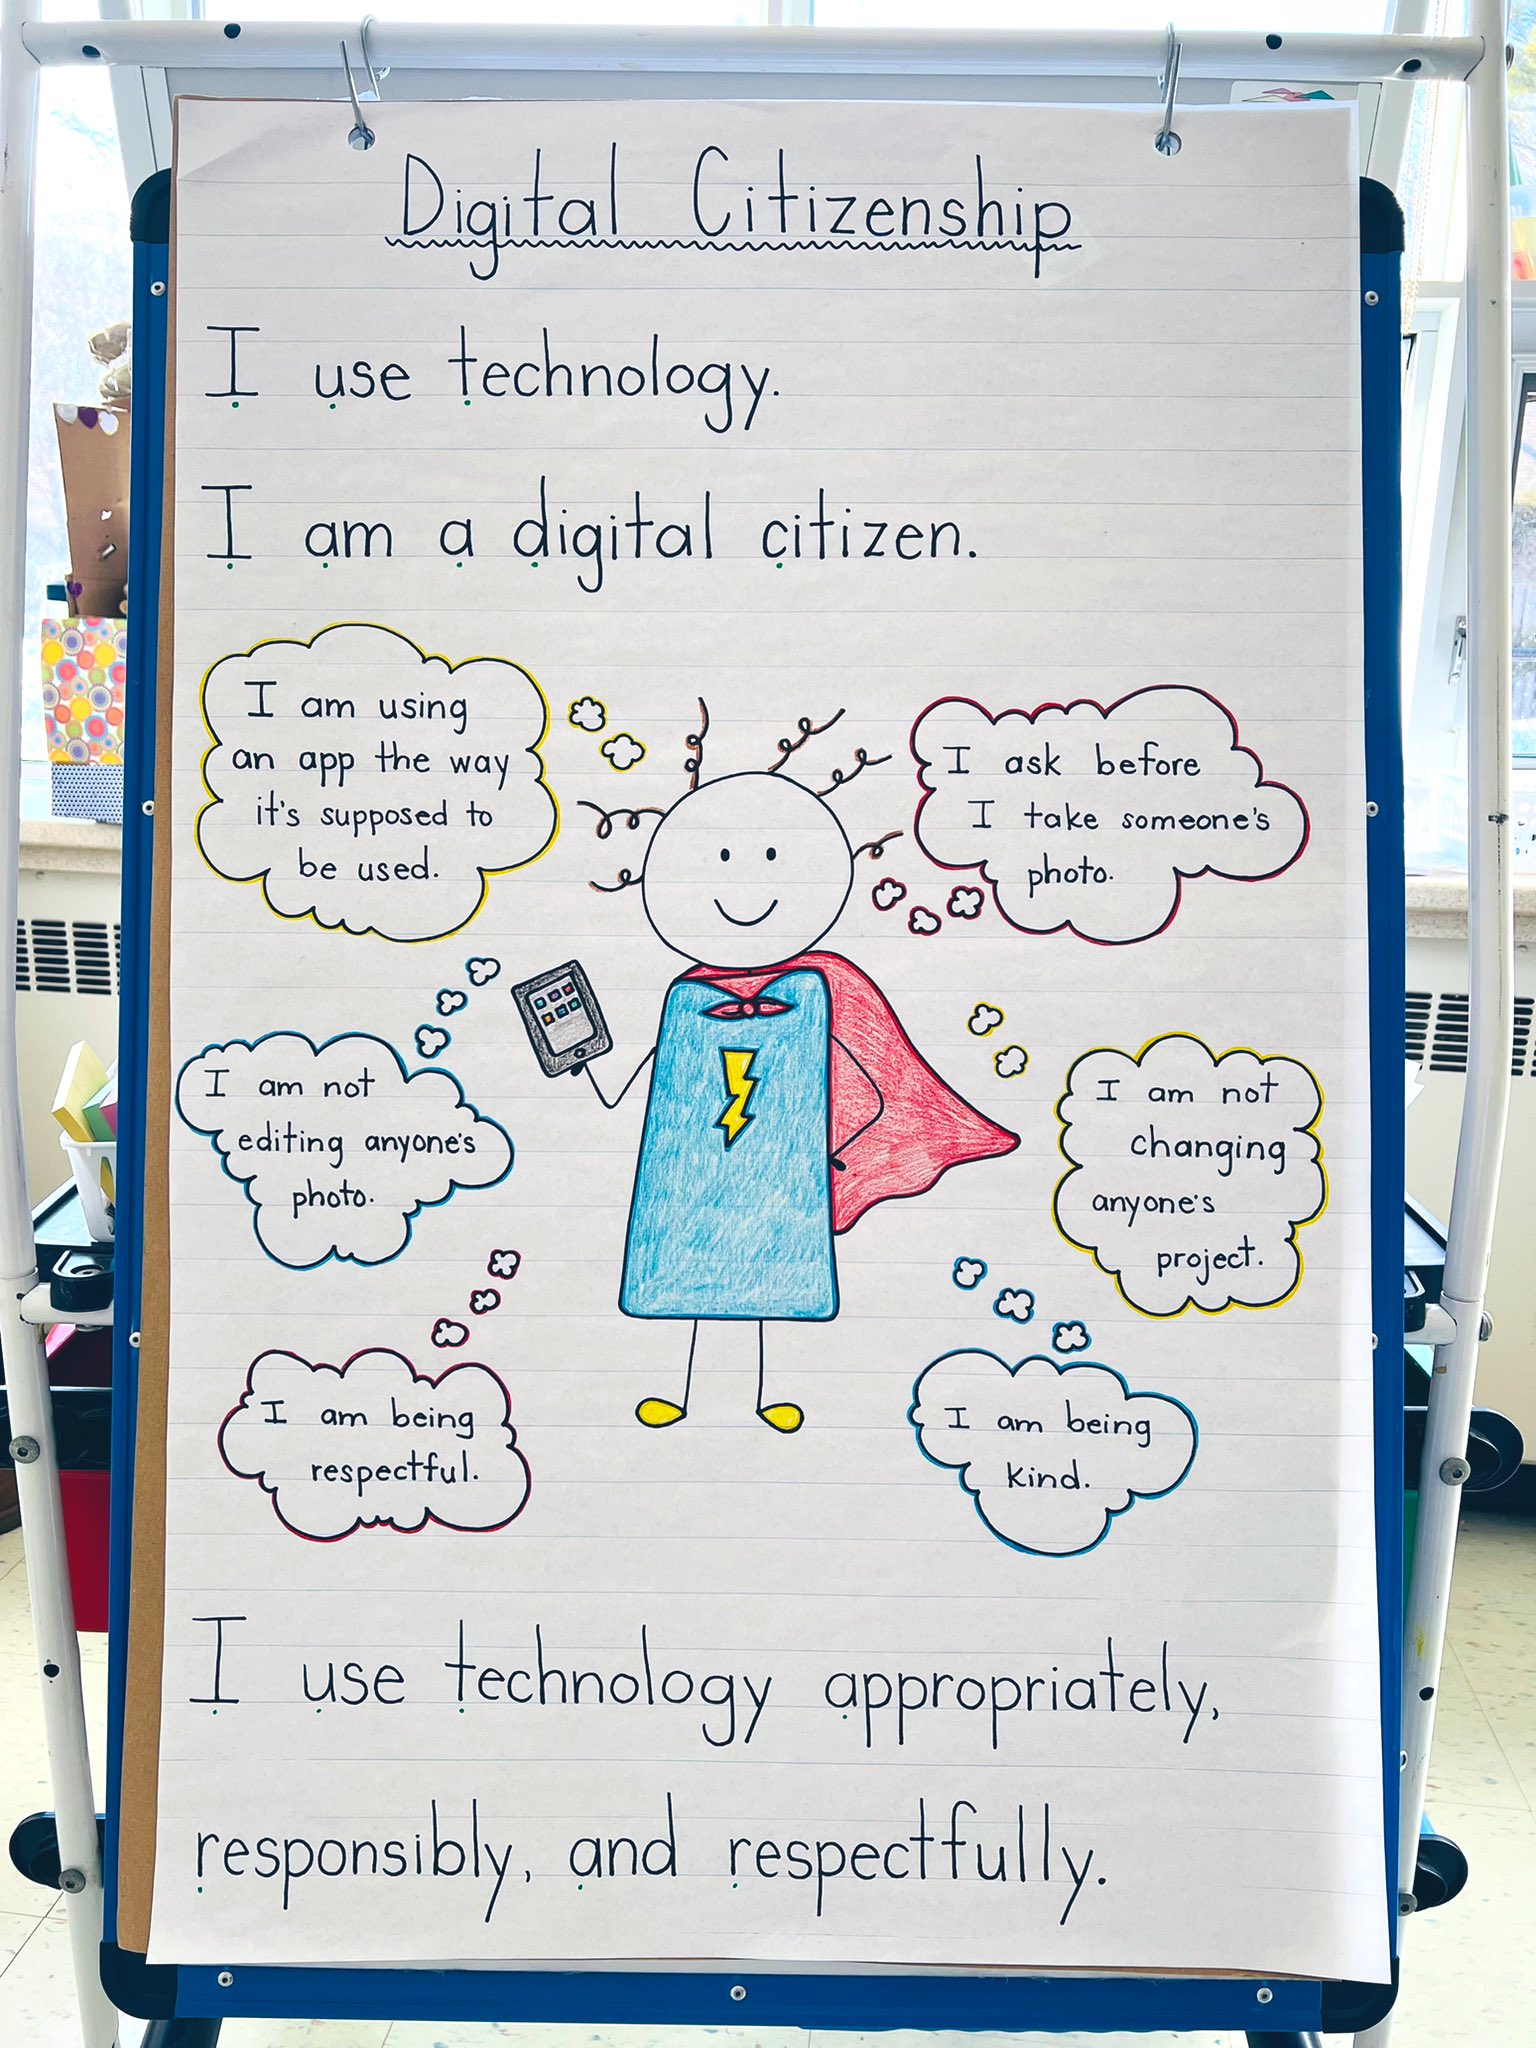 Digital Citizenship
I use technology.
I am a digital citizen.
I am using
an app the way
it's supposed to
be used.
I ask before
I take someone's
photo.
I am not
editing anyone's
photo.
I am not
changing
anyone's
project.
I am being
respectful.
I am being
kind.
I use technology appropriately,
responsibly, and respectfully.